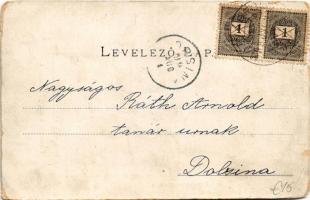 1 1
LEVELEZŐ
Nagyságos
Ráth Arnold
tanár urnak
Dolsina